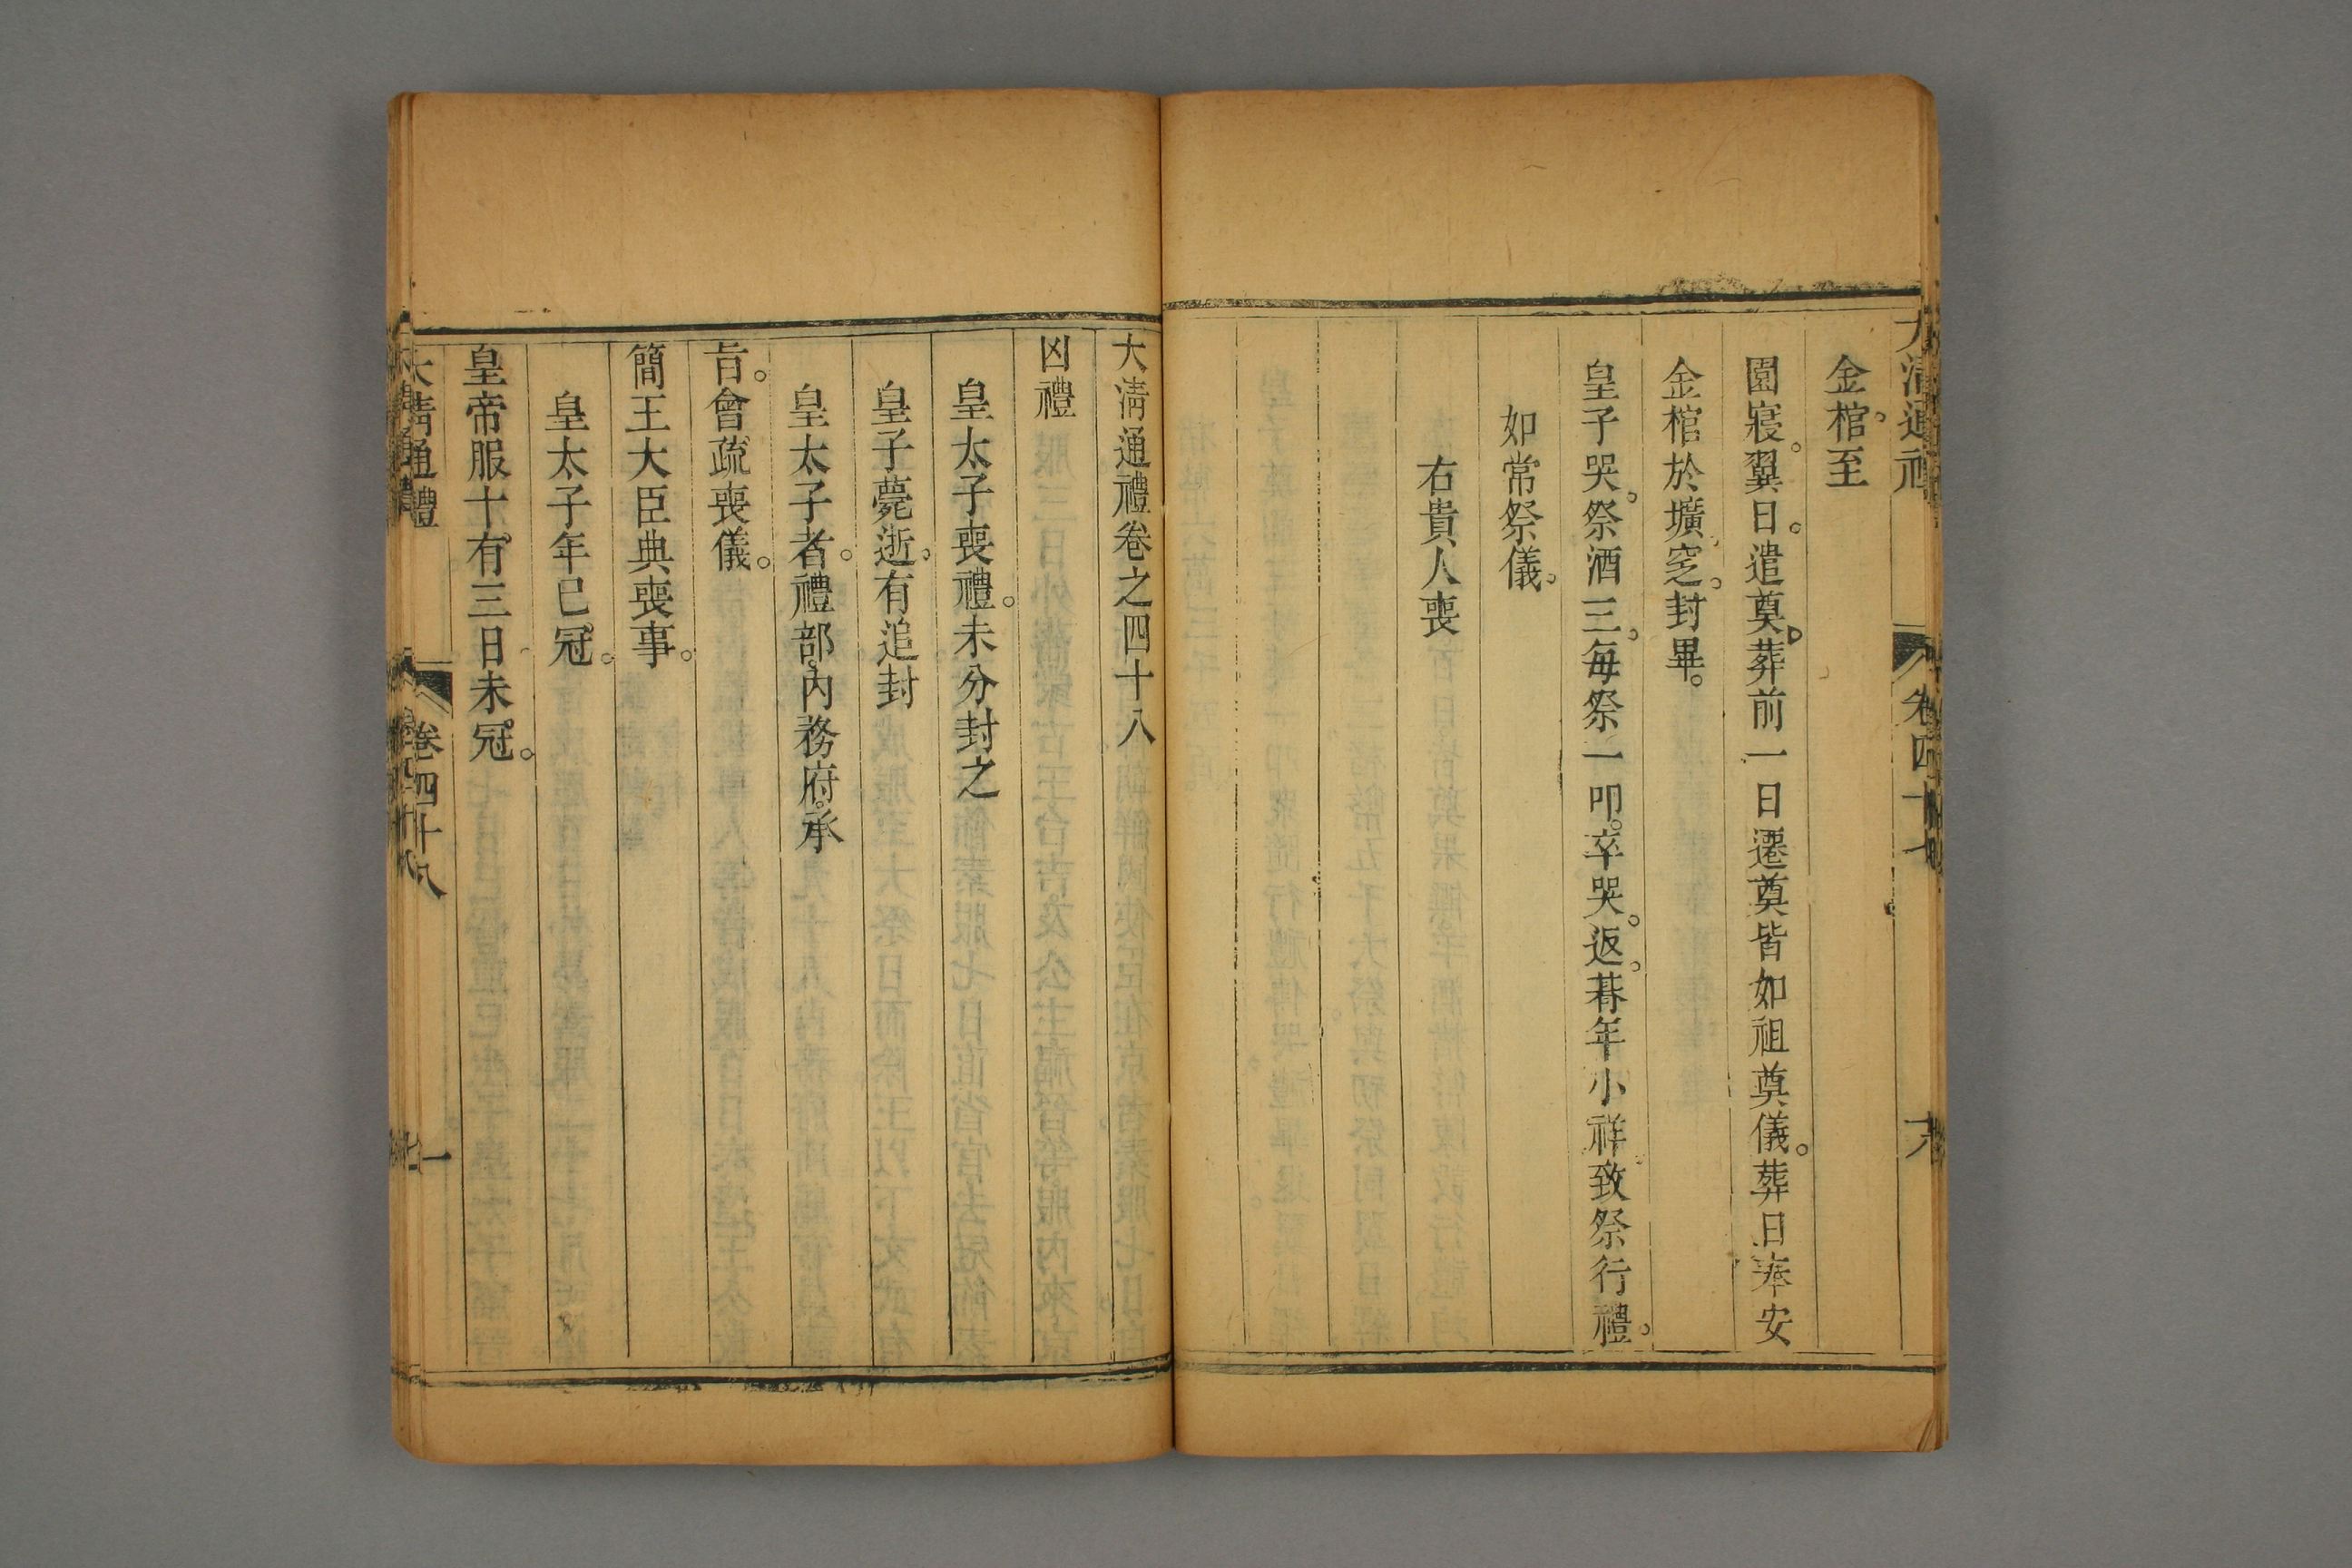 大清通禮
卷四十七
金棺。至
園寢。翼日。遣奠。葬前一日遷奠皆如祖奠儀。葬日奉安
金棺於壙。窆。封畢。
皇子哭。祭酒三。每祭一叩。卒哭。返。朞年小祥致祭行禮。
如常祭儀。
右貴人喪
大清通禮卷之四十八
凶禮
皇太子喪禮。未分封之
皇子薨逝。有追封
皇太子者。禮部。內務府。承
旨。會疏喪儀。
簡王大臣典喪事。
皇太子年已冠。
皇帝服十有三日。未冠。
大清通禮
卷四十八
一